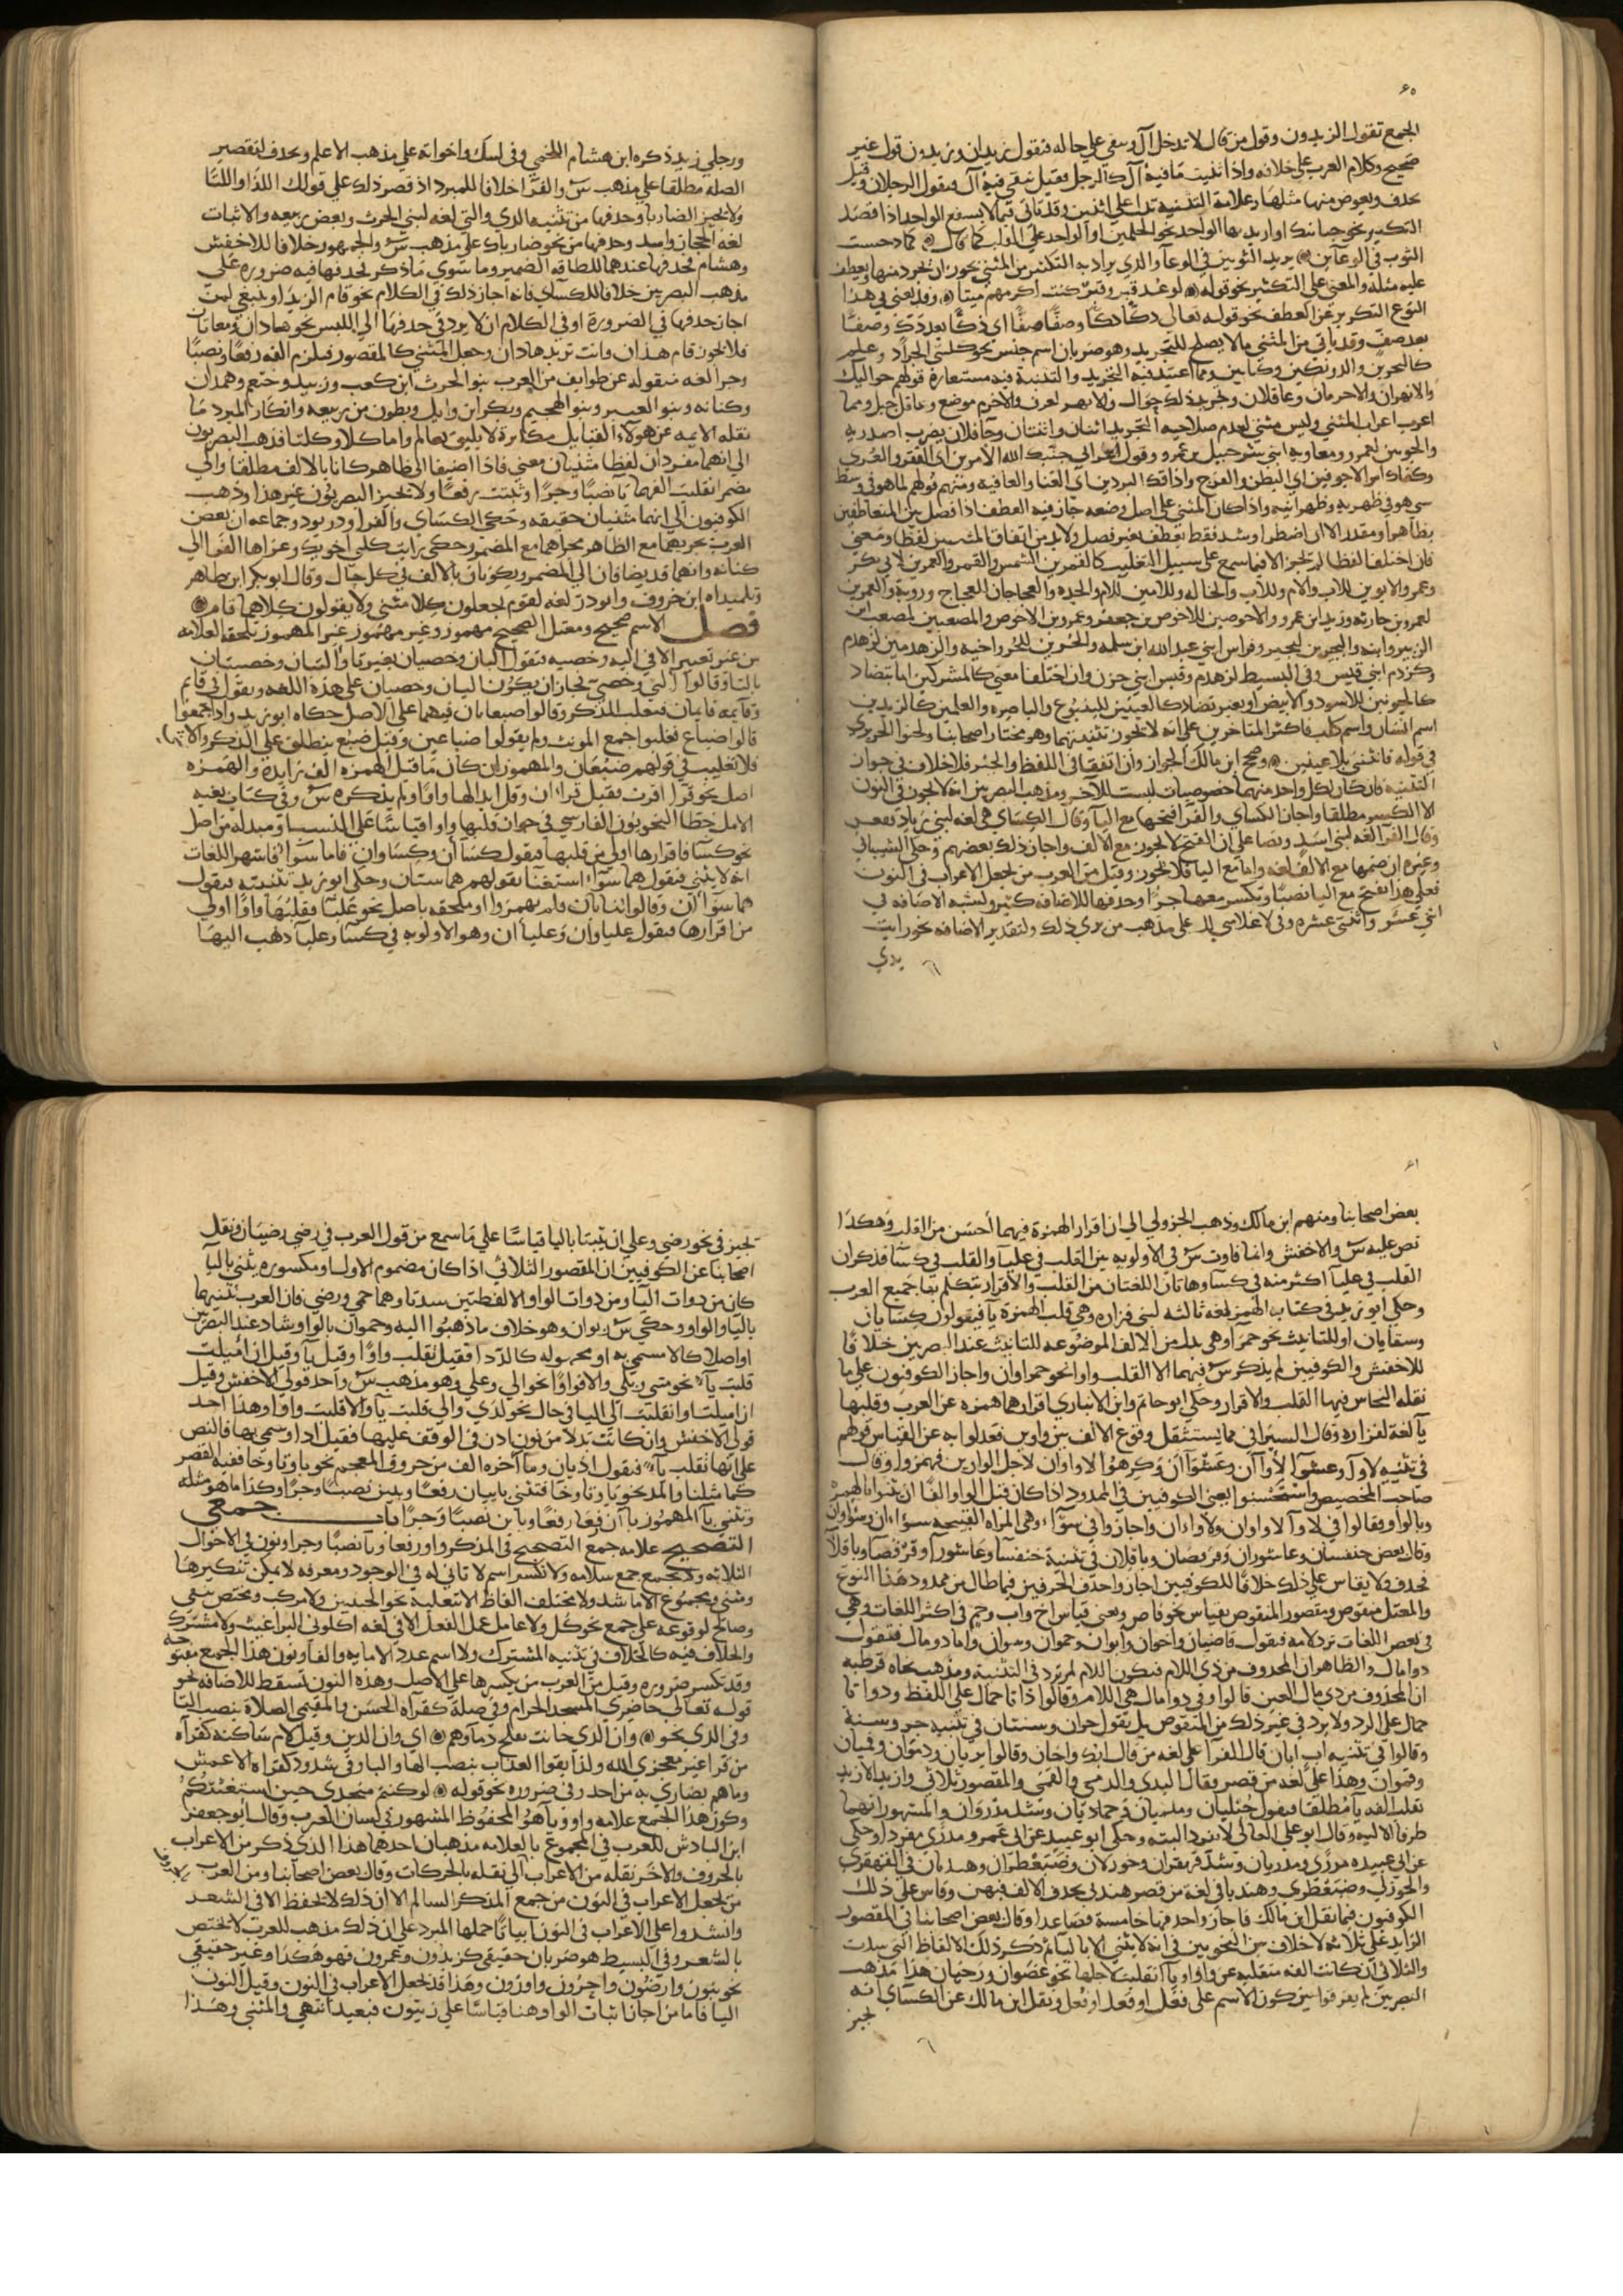 ٦٥
الجمع تقول الزيدون وقول من قال لا تدخل آل وسقي على حاله فتقول زيدان وزيدون قول غير
صحيح وكلام العرب على خلافه واذا ثنيت ما فيه آل كالرجل فقيل تبقى فيه آل فيقول الرجلان وقيل
تحذف ويعوض منها مثلها وعلامة التثنية تدل على اثنين وقد تأتي فيما لا يسفع الواحد اذا قصد
التكثير نحو حنانيك او اريد بها الواحد نحو الجلمين او الواحد على كما قال
الثوب في الوعاين يريد الثوبين في الوعا والذي يراد به التكثير من المثنى يجوز ان تجرد منها ويعطف
عليه مثله والمعنى على التكثير نحو قوله لو عد قبر وقبر كنت اكرمهم ميتا وقد يغني في هذا
النوع التكرير عن العطف نحو قوله تعالى دكًا دكًا وصفًا صفًا اى دكًا بعد دكّ وصفًا
بعد صف وقد ياتي من المثنى ما لا يصلح للتجريد وهو ضربان اسم جنس نحو كلبتي الحداد وعلم
كالبحرين والدونكين وكتابين ومما اعتيد فيه التجريد والتثنية فيه مستعارة قولهم حواليك
اعرب اعراب المثنى وليس مثنى لعدم صلاحيه التجريد اثنان واثنتان
كالجونين للاسود والابيض او بغير تضاد كالعينين للينبوع والباصره والعلمين كالزيدين
اسم انسان واسم كلب فاكثر المتاخرين على انه لا يجوز تثنيتهما وهو مختار اصحابنا ولحنوا الحريري
في قوله فانثنى بلا عينين وصحح ابن مالك الجواز وان اتفقا في اللفظ والجنس فلا خلاف في جواز
التثنية فان كان لكل واحد منهما خصوصيات ليست للآخر ومذهب البصريين انه لا يجوز في النون
الا الكسر مطلقا واجاز الكسائي والفرا فتحها مع اليا وقال الكسائي هي لغه لبني زياد
وقال الفرا لغه لبني اسد ونصا على ان الفتح لا يجوز مع الالف واجاز ذلك بعضهم وحكى الشيباني
وغيره ان ضمها مع الالف لغه واما مع اليا فلا يجوز وقيل من العرب من يجعل الاعراب في النون
اثني عشر واثنتي عشره وفي لا غلامي لك على مذهب من يري ذلك ولتقدير الاضافه نحو رايت
يدي
ورجلي زيد ذكره ابن هشام اللخمي وفي لبيك واخواته على مذهب الاعلم وتحذف لتقصير
الصله مطلقا على مذهب س والفرا خلافا للمبرد اذ قصر ذلك على قولك اللذا واللتا
ولا يجيز الضاربا وحذفها من تثنيه الذي والتي لغه لبني الحرث وبعض ربيعه والاثبات
لغه الحجاز واسد وحذفها من نحو ضارباك على مذهب س والجمهور خلافا للاخفش
وهشام فحذفها عندهما للطافه الضمير وما سوى ما ذكر تحذفها فيه ضروره على
مذهب البصريين خلافا للكسائي فانه اجاز ذلك في الكلام نحو قام الزيدا وينبغي لمن
اجاز حذفها في الضرورة او في الكلام ان لا يودي حذفها الي اللبس نحو هاذان
فلا يجوز قام هذا وانت تريد هاذان وجعل المثنى كالمقصور فيلزم الفه رفعًا ونصبًا
وجرا لغه منقوله عن طوايف من العرب بنو الحرث ابن كعب وزبيد وخثعم وهمدان
وكنانه وبنو العنبر وبنو الهجيم وبكر ابن وايل وبطون من ربيعه وانكار المبرد ما
نقله الايمه عن هولاء القبايل مكابرة لا يليق بعالم واما كلا وكلتا فذهب البصريون
الي انهما مفردان لفظا مثنيان معنى فاذا اضيفا الي ظاهر كانا بالالف مطلقا والي
مضمر انقلبت الفهما يا نصبًا وجرًا وثبتت رفعًا ولا يجيز البصريون غير هذا وذهب
الكوفيون الي انهما مثنيان حقيقه وحكى الكسائي والفرا ودريود وجماعه ان بعض
العرب يجريهما مع الظاهر مجراهما مع المضمر وحكى رايت كلي اخويك وعزاها الفرا الي
كنانه وانهما قد يضافان الي المضمر ويكونان بالالف في كل حال وقال ابو بكر ابن طاهر
وتلميذاه ابن خروف وابو ذر لغه لقوم يجعلون كلا مثنى ولا يقولون كلاهما قام
فصل الاسم صحيح ومعتل الصحيح مهموز وغير مهموز غير المهموز يلحقه العلامه
من غير تغيير الا في اليه وخصيه فتقول اليان وخصيان بغير تا واليتان وخصيتان
بالتا وقالوا الي وخصي فجاز ان يكون اليان وخصيان على هذه اللغه وتقول في قايم
وقايمه قايمان فتغلب المذكر وقالوا ضبعانان فبهما على الاصل حكاه ابو زيد واذا جمعوا
قالوا ضباع فغلبوا جمع المونث ولم يقولوا ضباعين وقيل ضبع ينطلق على الذكر والانثى
فلا تغليب في قولهم ضبعان والمهموز ان كان ما قبل الهمزه الف زايدة والهمزه
اصل نحو قرا اقرت فقيل قراءان وقل ابدالها واوًا ولم يذكره س وفي كتاب
نحو كسا فاقرارها اولى من قلبها فيقول كساءان وكساوان فاما سوا فاشهر اللغات
انه لا يثنى فتقول هما سواء استغنا بقولهم هما سيّان وحكى ابو زيد تثنيته فيقول
هما سواءان وقالوا ثنايان فلم يهمزوا او ملحقه باصل نحو علبا فقلبها واوًا اولى
من اقرارها فيقول علباوان وعلباءان وهو الاولويه في كسا وعلبا ذهب اليها
٦٦
بعض اصحابنا ومنهم ابن مالك وذهب الجزولي الي ان اقرار الهمزة فيهما أحسن من القلب وهكذا
نص عليه س والاخفش وانما فاوت س في الاولويه بين القلب في علبا والقلب في كسا فذكر ان
القلب في علبا اكثر منه في كسا وهاتان اللغتان من القلب والاقرار يتكلم بها جميع العرب
وحكى ابو زيد في كتاب الهمز لغه ثالثه لبني فزاره وهي قلب الهمزة يا فيقولون كسايان
وسقايان او للتانيث نحو حمرا وهي بدل من الالف الموضوعه للتانيث عند البصريين خلافًا
للاخفش والكوفيين لم يذكر س فيهما الا القلب واوا نحو حمراوان واجاز الكوفيون على ما
نقله النحاس فيها القلب والاقرار وحكى ابو حاتم وابن الانباري اقرارها همزه عن العرب وقلبها
يا لغه لفزاره وقال السيرافي مما يستثقل وقوع الالف بين واوين فعدلوا به عن القياس قولهم
في تثنيه لاوآ وعشوا لاوآان وعشوآان وكرهوا لاواوان لاجل الواوين فهمزوا وقال
صاحب المخصص واستحسنوا يعني الكوفيين في الممدود اذا كان قبل الواو الفًا ان يثنوا بالهمز
وبالواو فقالوا في لاوآ لاواوان ولاواءان واجاز وا في سوآء وهي المراه القبيحه سوءاان وسواوان
وقال بعض خنفسان وعاشوران وقرفصان وباقلان في تثنية خنفسا وعاشورا وقرفصا وباقلا
تحذف ولا يقاس على ذلك خلافا للكوفيين اجازوا حذف الحرفين فيما طال من ممدود هذا النوع
والمعتل منقوص ومقصور المنقوص بقياس نحو قاض وبغير قياس اخ واب وحم في اكثر اللغات وهي
في بعض اللغات ترد لامه فيقول قاضيان واخوان وابوان وحموان وهنوان واما ذو مال فتقول
ذوا مال والظاهر ان المحذوف من ذي اللام فيكون اللام لم ترد في التثنية ومذهب نحاه قرطبه
ان المحذوف من ذي مال العين قالوا وفي ذوا مال هي اللام وقالوا ذاتا حمال على اللفظ وذواتا
حمال على الرد ولا يرد في غير ذلك من المنقوص بل يقول حران وسنتان في تثنيه حر وسنة
وقالوا في تثنيه اب ابان قال الفرا على لغه من قال ابك واخان وقالوا يديان ودموان وفميان
وفموان وهذا على لغه من قصر فقال اليدى والدمى والفمى والمقصور ثلاثي وازيد الازيد
تقلب الفه يا مطلقا فيقول حبليان وملهيان وحماديان وشذ مذروان والمشهور انهما
طرفا الاليه وقال ابو علي القالي لا يفرد البته وحكى ابو عبيد عن ابي عمرو مذرى مفردا وحكى
عن ابي عبيده مذرى ومذريان وشذ قهقران وخوزلان وضبغطران وهنديان في القهقرى
والخوزلى وضبغطرى وهندبا في لغه من قصر هندبى بحذف الالف فيهن وقاس على ذلك
الكوفيون فيما نقل ابن مالك فاجازوا حذفها خامسة فصاعدا وقال بعض اصحابنا في المقصور
الزايد على ثلاثه لا خلاف بين النحويين في انه لا يثنى الا باليا ثم ذكر ذلك الالفاظ التي شذت
والثلاثي ان كانت الفه منقلبه عن واو او يا انقلبت لاجلها نحو عصوان ورحيان هذا مذهب
البصريين لم يفرقوا بين كون الاسم على فَعَل او فِعَل او فُعَل ونقل ابن مالك عن الكسائي انه
يجيز
يجيز في نحو رضي وعلى ان يثنيا باليا قياسًا على ما سمع من قول العرب في رضى رضيان ونقل
اصحابنا عن الكوفيين ان المقصور الثلاثي اذا كان مضموم الاول او مكسوره يثنى باليا
كان من ذوات اليا ومن ذوات الواو الا لفظتين شذتا وهما حمى ورضى فان العرب ثنتهما
باليا والواو وحكى س ربوان وهو خلاف ما ذهبوا اليه وحموان بالواو شاذ عند البصريين
او اصلا كالا مسمى به او مجهوله كالددا فقيل تقلب واوًا وقيل يا وقيل ان اميلت
قلبت يا نحو متى وبلى والا فواوًا نحو الى وعلى وهو مذهب س واحد قولى الاخفش وقيل
ان اميلت او انقلبت الي اليا في حال نحو لدى والى قلبت يا والا قلبت واوًا وهذا احد
قولى الاخفش وان كانت بدلا من نون اذن في الوقف عليها فقيل اذا وسمي بها فالنص
على انها تقلب يا فيقول اذيان وما آخره الف من حروف المعجم نحو با وتا وخا ففيه القصر
كما مثلنا والمد نحو با وتا وخا فتثني بابيان رفعًا وبيين نصبًا وجرًا وكذا ما هو مثله
وتثني با المهموز باآن فعل رفعًا وباين نصبًا وجرًا باب جمعي
التصحيح علامه جمع التصحيح في المذكر واو رفعا ويا نصبًا وجرا ونون في الاحوال
الثلاثه ولا يجمع جمع سلامه ولا تكسر اسم لا ثاني له في الوجود ومعرفه لا يمكن تنكيرها
ومثنى ومجموع الا ما شذ ولا مختلف الفاظ الا تغليبا نحو الخبيبين ولا مركب ومختص بنفي
وصالح لوقوعه على جمع نحو كل ولا عامل عمل الفعل الا في لغه اكلوني البراغيث ولا مشترك
والخلاف فيه كالخلاف في تثنيه المشترك ولا اسم عدد الا مايه والفا ونون هذا الجمع مفتوحه
وقد تكسر ضروره وقيل من العرب من يكسرها على الاصل وهذه النون تسقط للاضافه نحو
قوله تعالى حاضري المسجد الحرام وفي صلة كقراه الحسن والمقيمي الصلاة بنصب التا
وفي الذي نحو وان الذي حانت بفلج دماوهم اى وان الذين وقبل لام ساكنه كقراه
من قرا غير معجزي الله ولذايقوا العذاب بنصب الها والبا وفي شذوذ كقراه الاعمش
وما هم بضاري به من احد وفي ضروره نحو قوله لو كنتم منجدي حين استغثتكم
وكون هذا الجمع علامه واو ويا هو المحفوظ المشهور في لسان العرب وقال ابو جعفر
ابن الباذش للعرب في المجموع بالعلامه مذهبان احدهما هذا الذي ذكر من الاعراب
بالحروف والاخر نقله من الاعراب الي نقله بالحركات وقال بعض اصحابنا ومن العرب
من يجعل الاعراب في النون من جمع المذكر السالم الا ان ذلك لا يحفظ الا في الشعر
وانشدوا على الاعراب في النون ابياتًا حملها المبرد على ان ذلك مذهب للعرب لا يختص
بالشعر وفي البسيط هو ضربان حقيقى كزيدون وعمرون فهو هكذا وغير حقيقي
نحو بنون وارضون واحرون واوزون وهذا قد يجعل الاعراب في النون وقبل النون
اليا فاما من اجاز اثبات الواو هنا قياسًا على زيتون فبعيد انتهى والمثنى وهذا